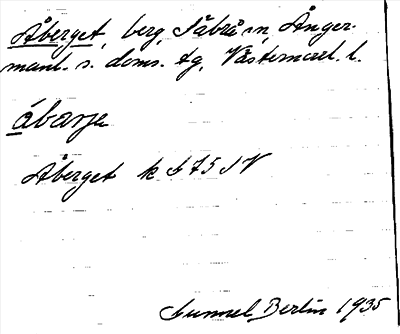 Åberget, berg, Säbrå sn, Ånger-
manl. s. doms. tg, Västernorrl. l.
åbarje
Åberget k b 75 S V
Gunnel Berlin 1935